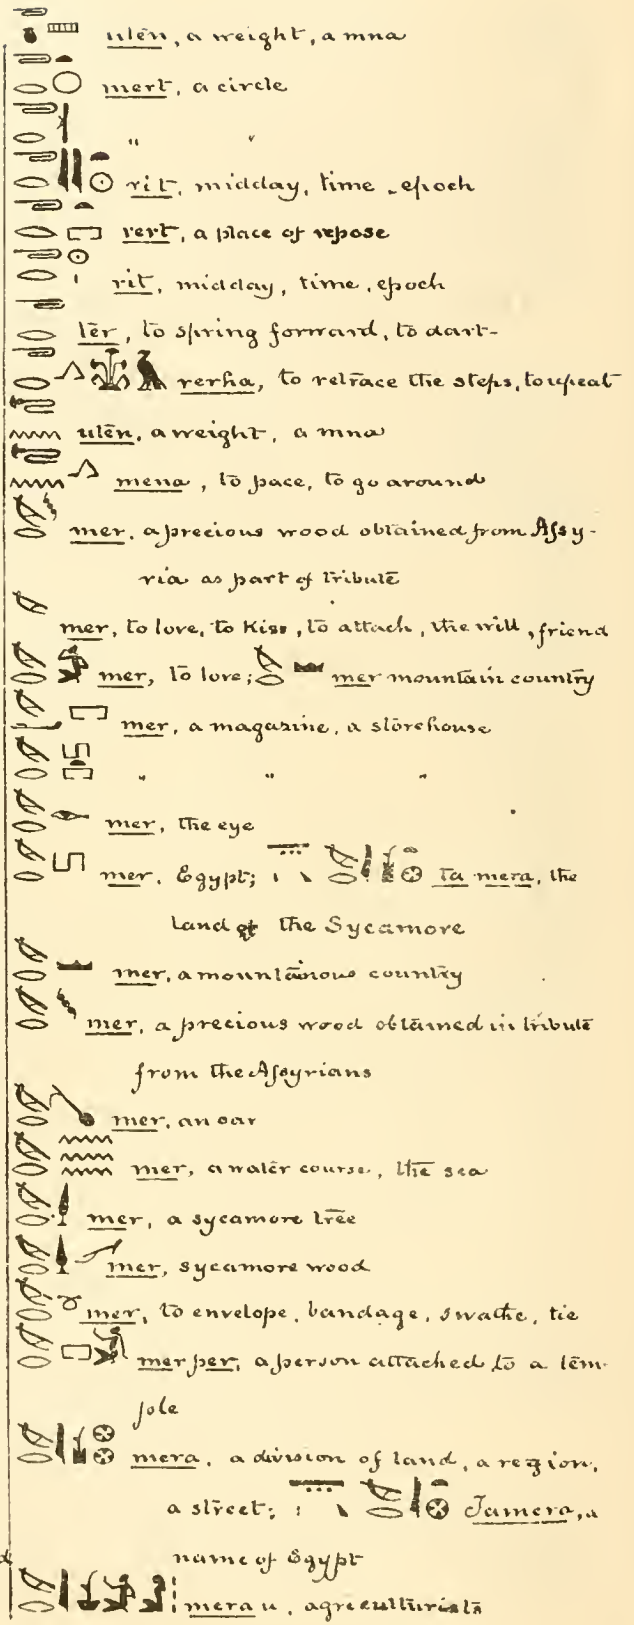 utēn, a weight, a mna
mert, a circle
" "
rit, midday, time, epoch
rert, a place of repose
rit, midday, time, epoch
ter, to spring forward, to dart-
rerha, to retrace the steps, to repeat
utēn, a weight, a mna
mena, to pace, to go around
mer, a precious wood obtained from Assy-
ria as part of tribute
mer, to love, to kiss, to attach, the will, friend
mer, to love; mer mountain country
mer, a magazine, a storehouse
" " "
mer, the eye
mer, Egypt; ta mera, the
land of the Sycamore
mer, a mountainous country
mer, a precious wood obtained in tribute
from the Assyrians
mer, an oar
mer, a water course, the sea
mer, a sycamore tree
mer, sycamore wood
mer, to envelope, bandage, swathe, tie
mer per, a person attached to a tem-
ple
mera, a division of land, a region,
a street; Tamera, a
name of Egypt
mera u, agriculturists